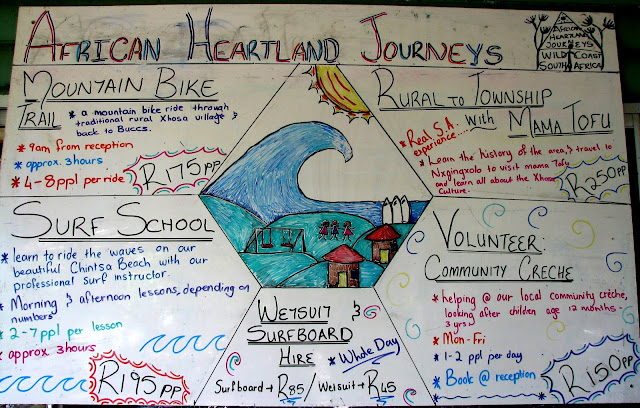 AFRICAN HEARTLAND JOURNEYS
AFRICAN
HEARTLAND
JOURNEYS
WILD COAST
SOUTH AFRICA
MOUNTAIN BIKE
TRAIL
* a mountain bike ride through
traditional rural Xhosa village &
back to Buccs.
* 9am from reception
* approx. 3 hours
* 4-8 ppl per ride
R175 PP
RURAL TO TOWNSHIP
with MAMA TOFU
* Real S.A.
experience.....
* Learn the history of the area, & travel to
Nxgingxolo to visit mama Tofu
and learn all about the Xhosa
Culture.
R250 PP
SURF SCHOOL
* learn to ride the waves on our
beautiful Chintsa Beach with our
professional surf instructor.
* Morning & afternoon lessons, depending on
numbers
* 2-7 ppl per lesson
* approx 3 hours
R195 PP
WETSUIT &
SURFBOARD
HIRE
* Whole Day
Surfboard → R85 / Wetsuit → R45
VOLUNTEER:
COMMUNITY CRECHE
* helping @ our local community crèche,
looking after children age 12 months -
3 yrs
* Mon - Fri
* 1-2 ppl per day
* Book @ reception
R150 PP